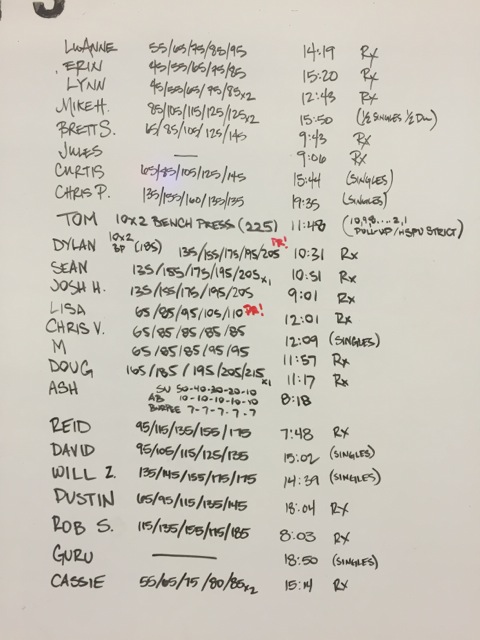 LUANNE 55/65/75/85/95 14:19 Rx
ERIN 45/55/65/75/85 15:20 Rx
LYNN 45/55/65/75/85x2 12:43 Rx
MIKE H. 85/105/115/125/125x2 15:50 (1/2 SINGLES 1/2 DU)
BRETT S. 65/85/105/125/145 9:43 Rx
JULES — 9:06 Rx
CURTIS 65/85/105/125/145 15:44 (SINGLES)
CHRIS P. 135/155/160/135/135 19:35 (SINGLES)
TOM 10x2 BENCH PRESS (225) 11:48 (10,9,8....2,1 PULLUP/HSPU STRICT)
DYLAN 10x2 BP (185) 135/155/175/195/205 PR! 10:31 Rx
SEAN 135/155/175/195/205x1 10:51 Rx
JOSH H. 135/155/175/195/205 9:01 Rx
LISA 65/85/95/105/110 PR! 12:01 Rx
CHRIS V. 65/85/85/85/85 12:09 (SINGLES)
M 65/85/85/95/95 11:57 Rx
DOUG 165/185/195/205/215x1 11:17 Rx
ASH SU 50-40-30-20-10 8:18
AB 10-10-10-10-10
BURPEE 7-7-7-7-7
REID 95/115/135/155/175 7:48 Rx
DAVID 95/105/115/125/135 15:02 (SINGLES)
WILL Z. 135/145/155/175/175 14:39 (SINGLES)
DUSTIN 65/95/115/135/145 18:04 Rx
ROB S. 115/135/155/175/185 8:03 Rx
GURU — 18:50 (SINGLES)
CASSIE 55/65/75/80/85x2 15:14 Rx